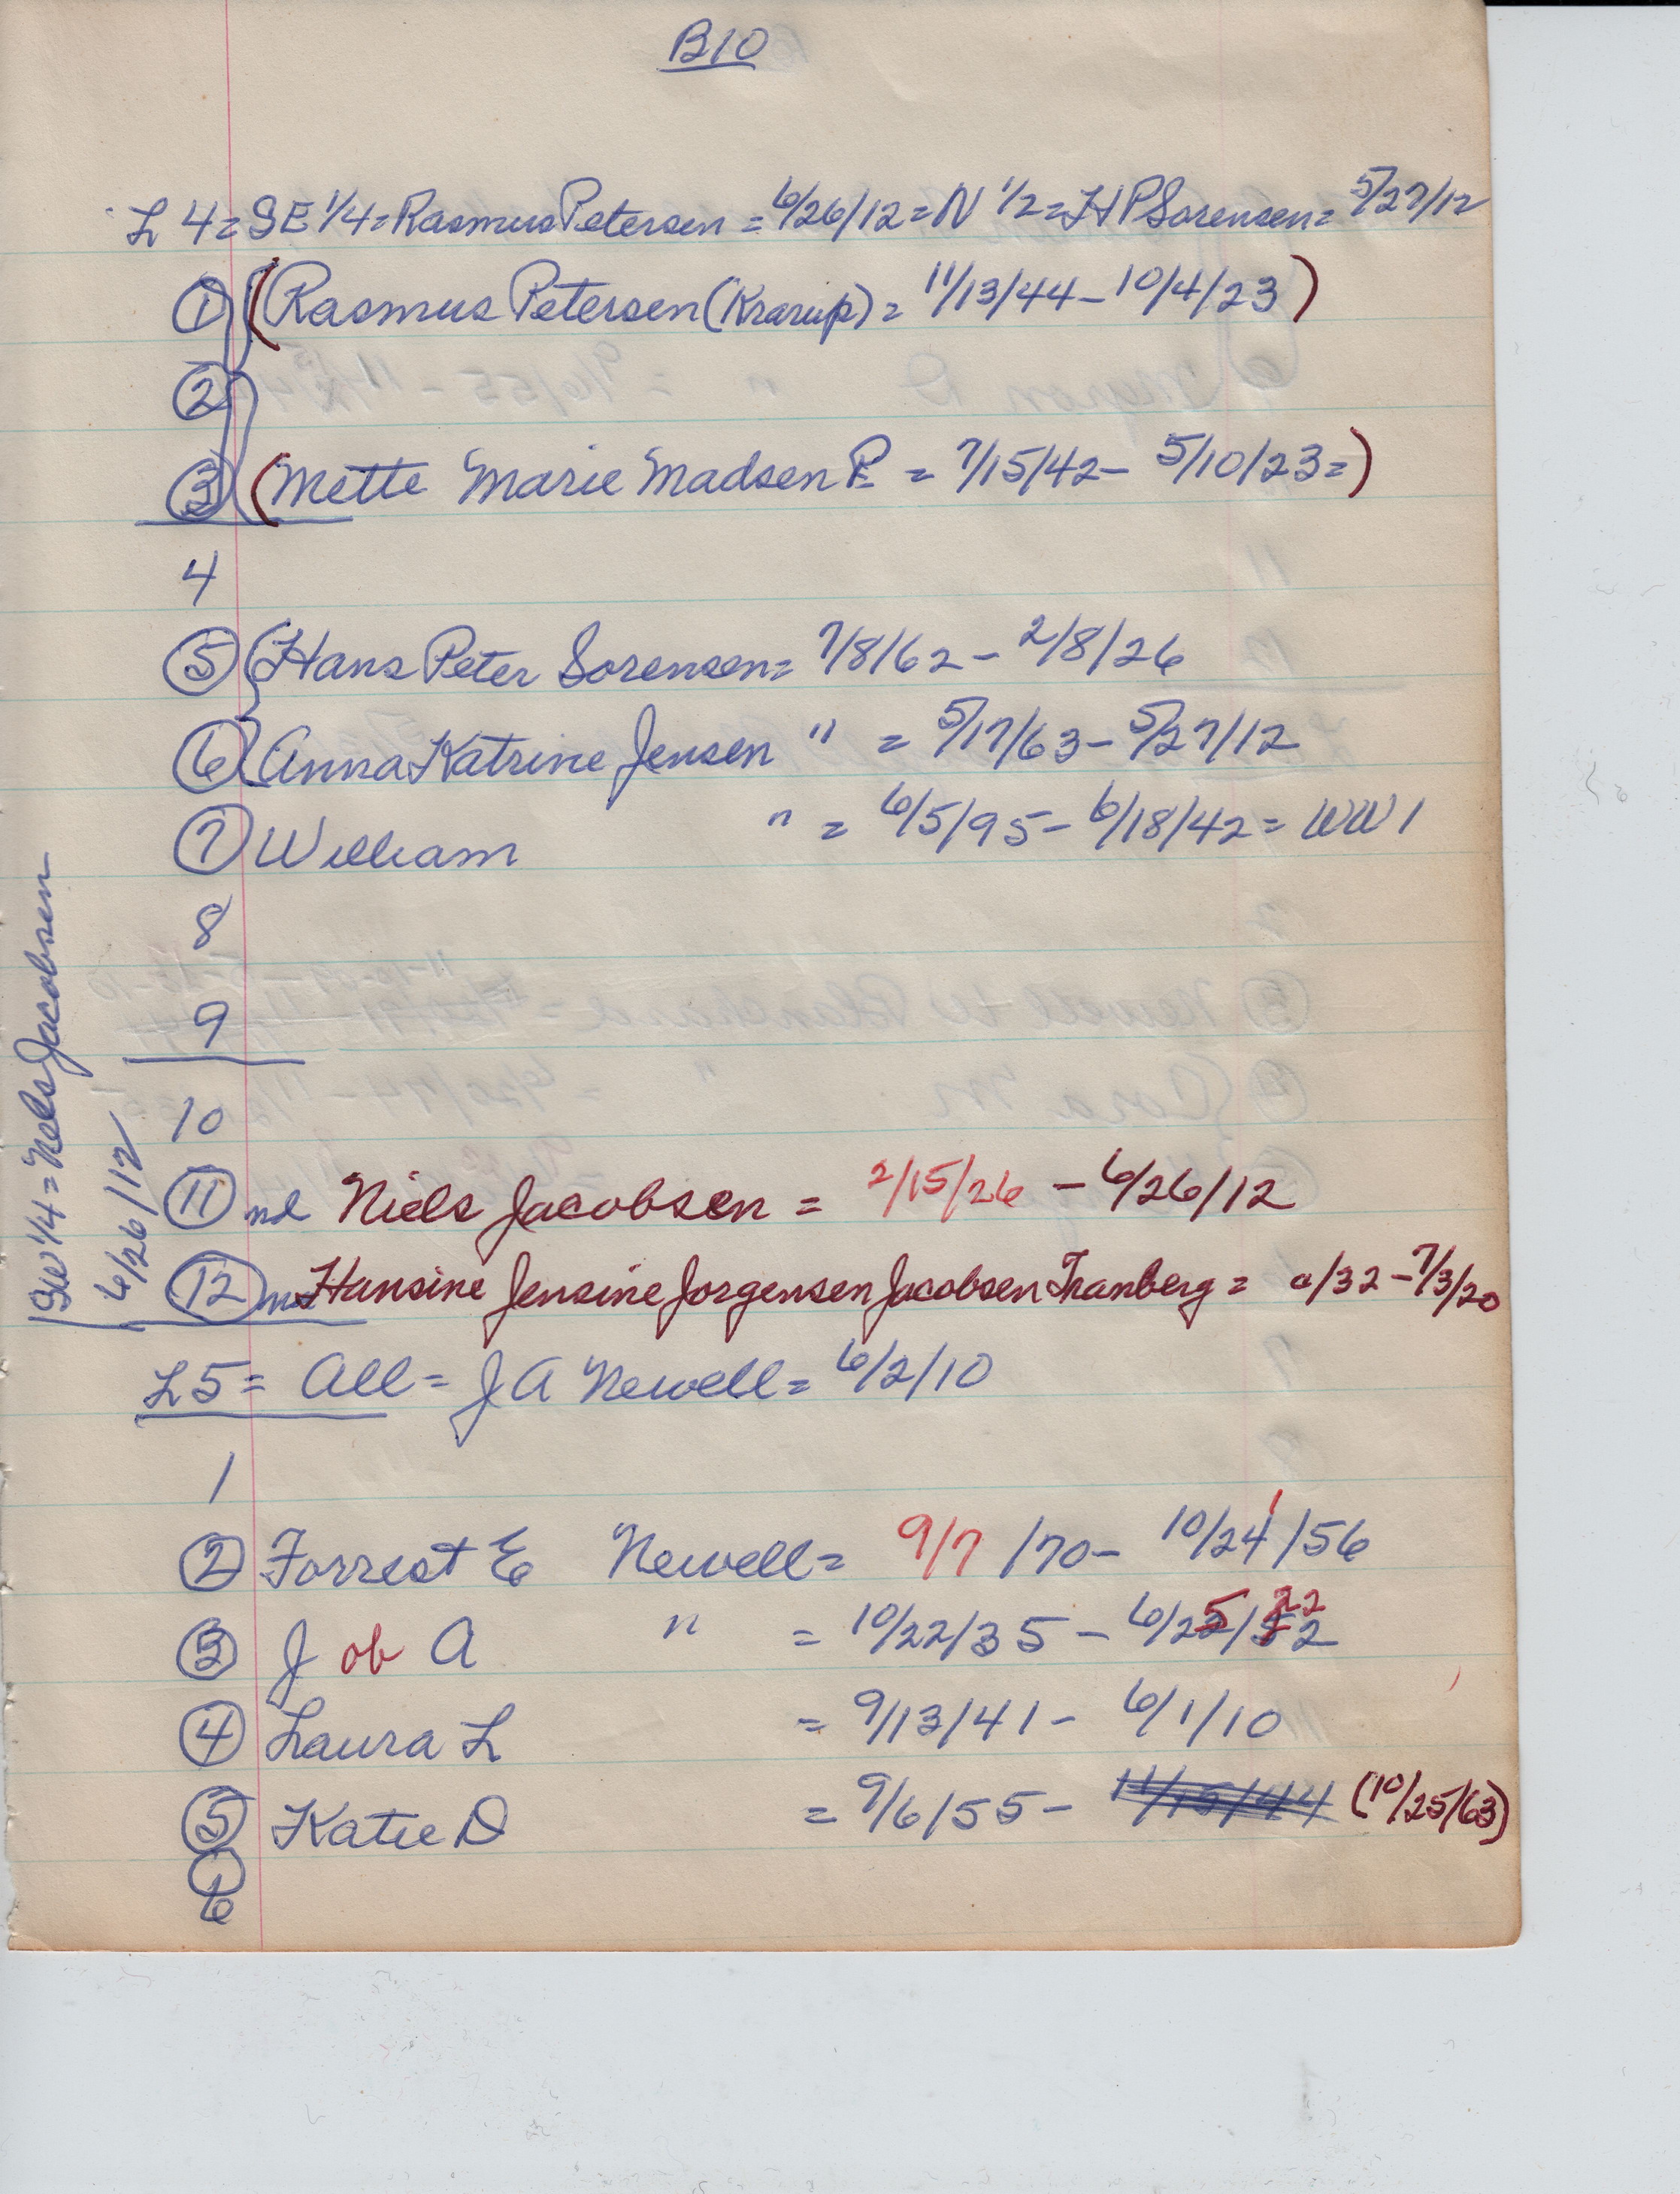 B10
L 4 = SE 1/4 = Rasmus Petersen = 6/26/12 = N 1/2 = H P Sorensen = 5/27/12
1 (Rasmus Petersen (Krarup) = 11/13/44 - 10/4/23)
2
3 (Mette Marie Madsen P. = 7/15/42 - 5/10/23 =)
4
5 Hans Peter Sorensen = 7/8/62 - 2/8/26
6 Anna Katrine Jensen " = 5/17/63 - 5/27/12
7 William " = 6/5/95 - 6/18/42 = WW 1
8
9
10
11 nd Niels Jacobsen = 2/15/26 - 6/26/12
12 Hansine Jensine Jorgensen Jacobsen Tranberg = 0/32 - 7/3/20
SW 1/4 = Nels Jacobsen
6/26/12
L 5 = All = J A Newell = 6/2/10
1
2 Forrest E Newell = 9/7/70 - 10/24/56
3 J ob A " = 10/22/35 - 6/25/22
4 Laura L = 9/13/41 - 6/1/10
5 Katie D = 9/6/55 - 11/15/44 (10/25/63)
6